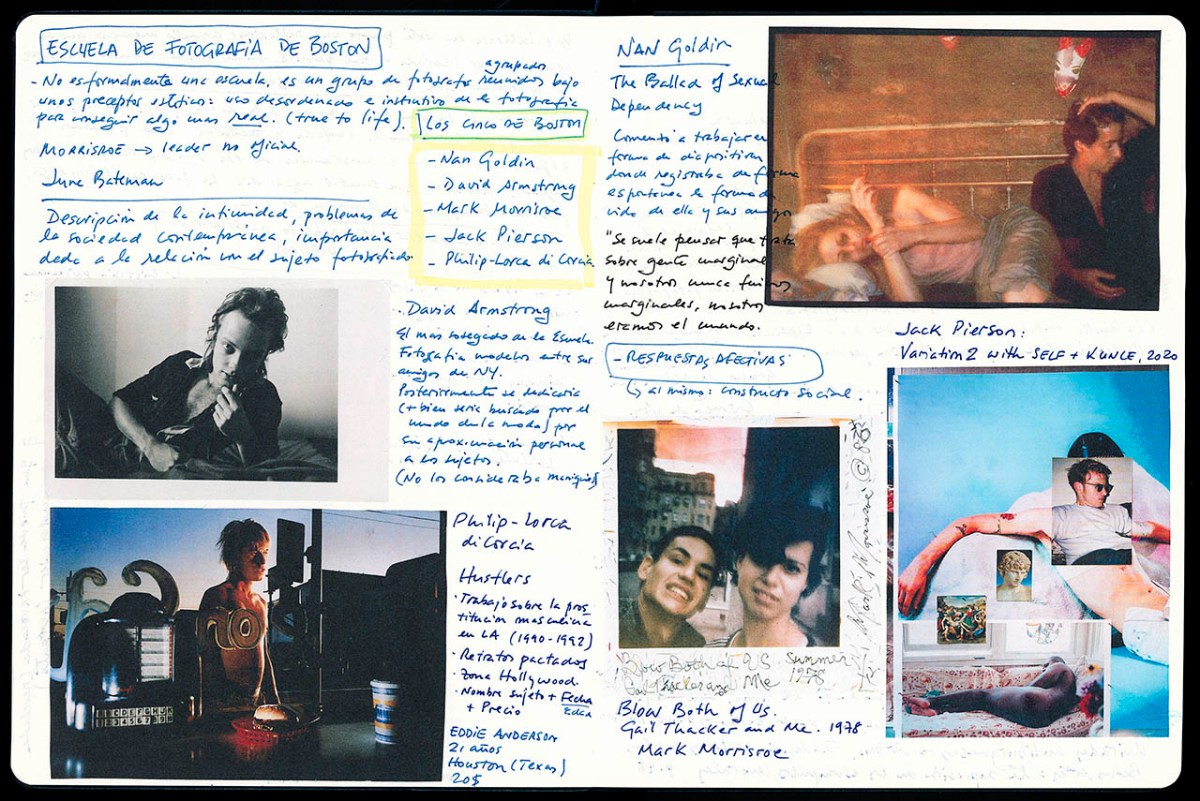 ESCUELA DE FOTOGRAFÍA DE BOSTON
- No es formalmente una escuela, es un grupo de fotografos reunidos bajo
agrupados
unos preceptos estéticos: uso desordenado e instintivo de la fotografía
para conseguir algo mas real. (true to life).
MORRISROE → leader no oficial.
June Bateman
Descripción de la intimidad, problemas de
la sociedad contemporánea, importancia
dada a la relación con el sujeto fotografiado
LOS CINCO DE BOSTON
- Nan Goldin
- David Armstrong
- Mark Morrisroe
- Jack Pierson
- Philip-Lorca di Corcia
David Armstrong
El mas sosegado de la Escuela
Fotografía modelos entre sus
amigos de NY.
Posteriormente se dedicaria
(+ bien seria buscado por el
mundo de la moda) por
su aproximación personal
a los sujetos.
(No los consideraba maniquís)
Philip-Lorca
di Corcia
Hustlers
· Trabajo sobre la pros
titución masculina
en LA (1990-1992)
· Retratos pactados
· Zona Hollywood.
· Nombre sujeto + Fecha
Edad
+ Precio
EDDIE ANDERSON
21 años
Houston (Texas)
20$
NO
ABCDEFGHJK
NAN Goldin
The Ballad of Sexual
Dependency
Comenzó a trabajar en
forma de diapositivas
donde registraba de forma
espontanea la forma de
vida de ella y sus amigos
"Se suele pensar que trata
sobre gente marginal
y nosotros nunca fuimos
marginales, nosotros
eramos el mundo.
- RESPUESTAS AFECTIVAS
↳ al mismo: constructo social.
Blow Both of US. Summer
Gail Thacker and Me 1978
Mark Morrisroe @
Blow Both of Us.
Gail Thacker and Me. 1978
Mark Morrisroe
Jack Pierson:
Variation 2 with SELF + KUNLE, 2020